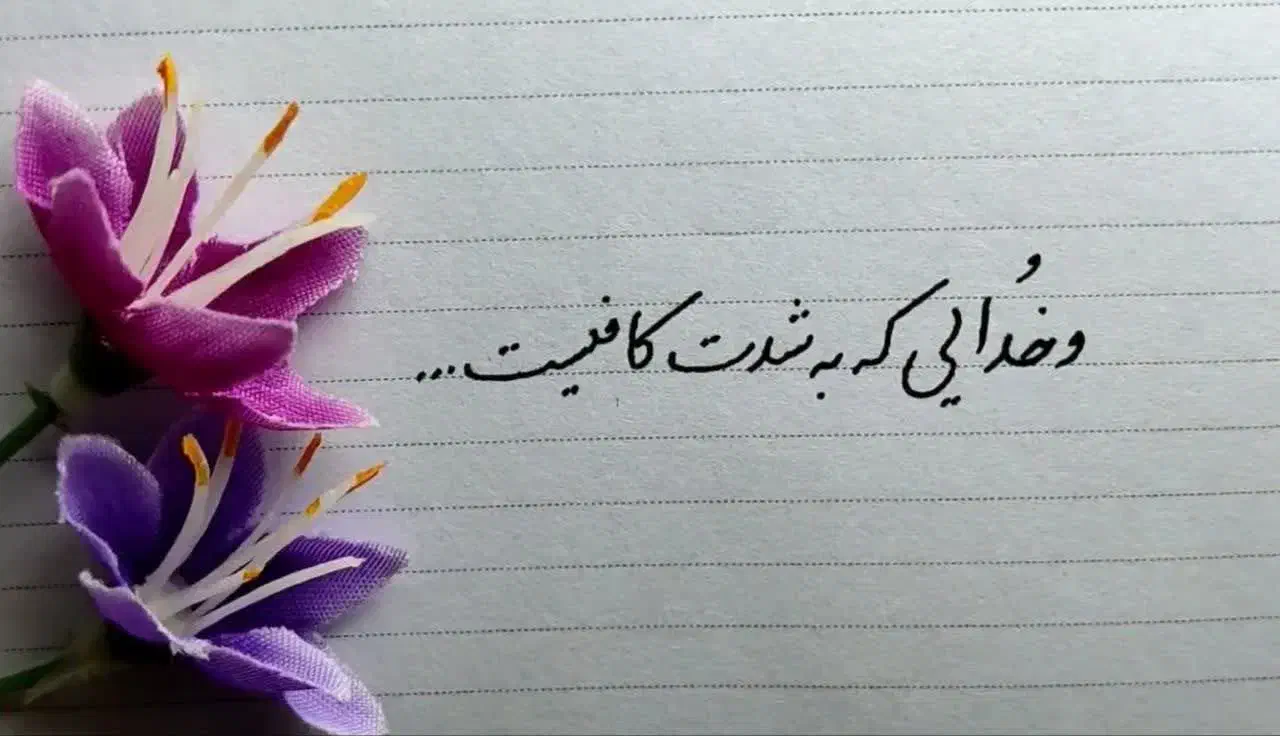 و خُدایی که به شدت کافیست...